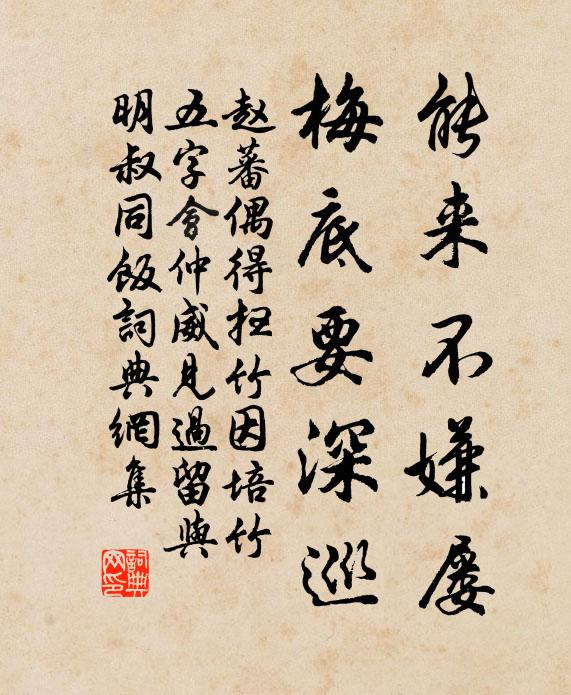 能来不嫌屡
梅底要深巡
赵蕃偶得扫竹因培竹
五字会仲威见过留与
明叔同饭词典网集
词典网印